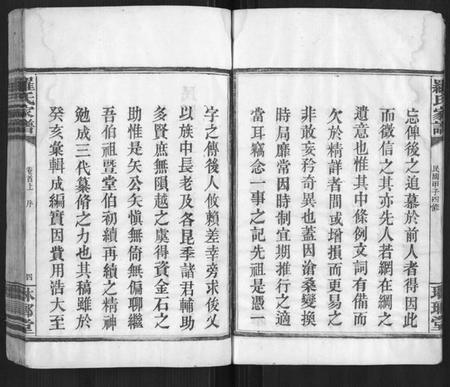 羅氏家譜
民國甲子四修
琅瑯堂
忘俾後之追慕於前人者得因此
而徵信之其亦先人若網在綱之
遺意也惟其中條例文詞有備而
欠於精詳者間或增損而更易之
非敢妄矜奇異也蓋因滄桑變換
時局靡常因時制宜期推行之適
當耳竊念一事之記先祖是憑一
字之傳後人攸賴差幸旁求俊乂
以族中長老及各昆季諸君輔助
多賢庶無隕越之虞得資金石之
助惟是矢公矢慎無倚無偏聊繼
吾伯祖暨堂伯初續再續之精神
勉成三代纂脩之力也其稿雖於
癸亥彙輯成編實因費用浩大至
羅氏家譜
卷首上 序
四
琅瑯堂